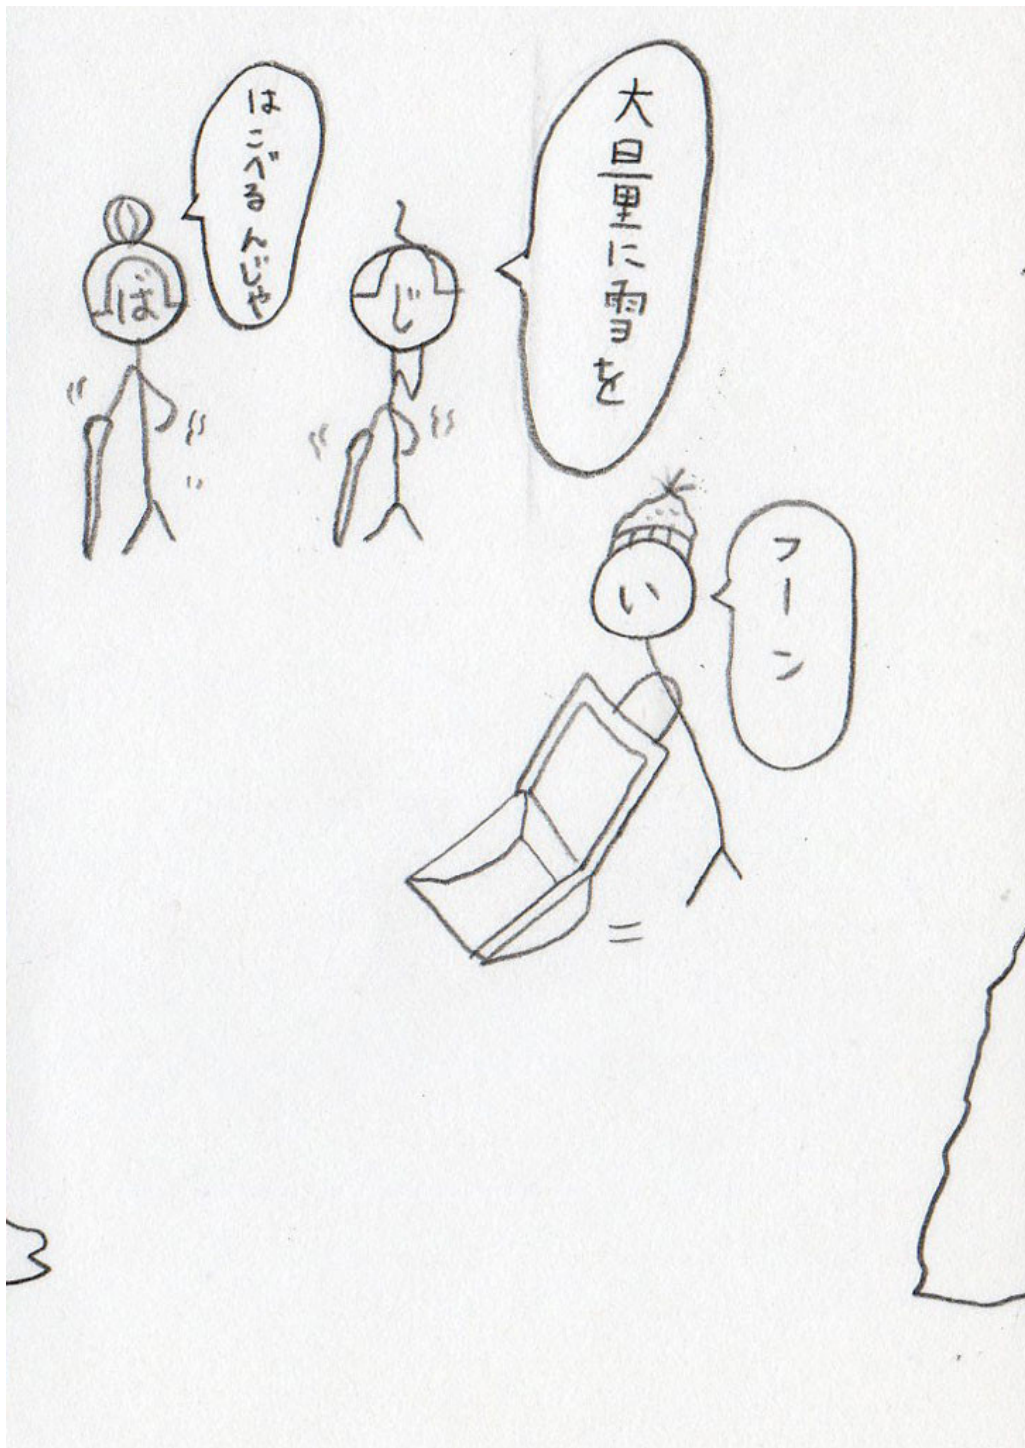 大量に雪を
はこべるんじゃ
じ
ば
フーン
い